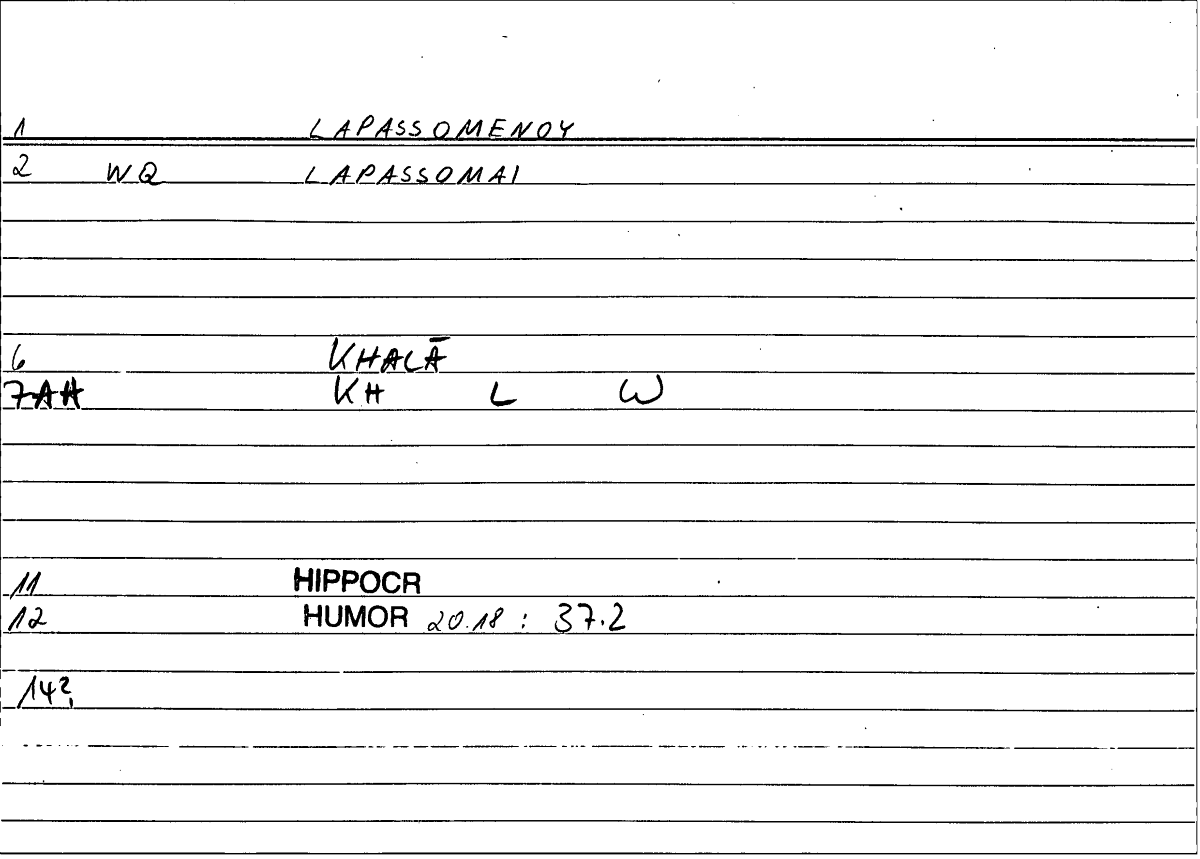 1 LAPASSOMENOY
2 WQ LAPASSOMAI
6 KHALĀ
7AH KH L W
11 HIPPOCR
12 HUMOR 20.18 : 37.2
14?